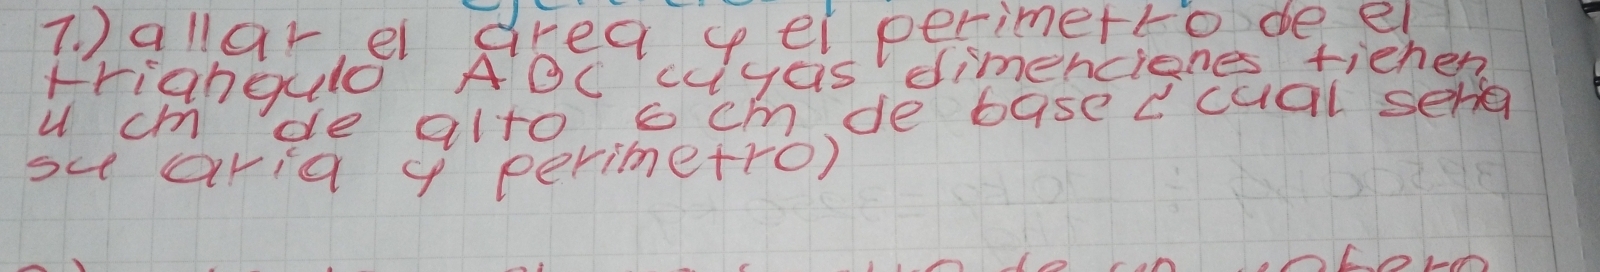 7.) allar el area y el perimetro de el
triangulo ABC cuyas dimenciones tienen
4 cm de alto 6 cm de base ¿cual seria
su aria y perimetro)